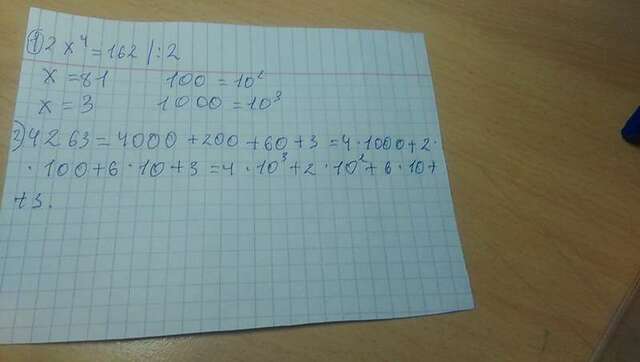 1) 2x⁴ = 162 | : 2
x = 81 100 = 10²
x = 3 1000 = 10³
2) 4263 = 4000 + 200 + 60 + 3 = 4 · 1000 + 2 ·
· 100 + 6 · 10 + 3 = 4 · 10³ + 2 · 10² + 6 · 10 +
+ 3.